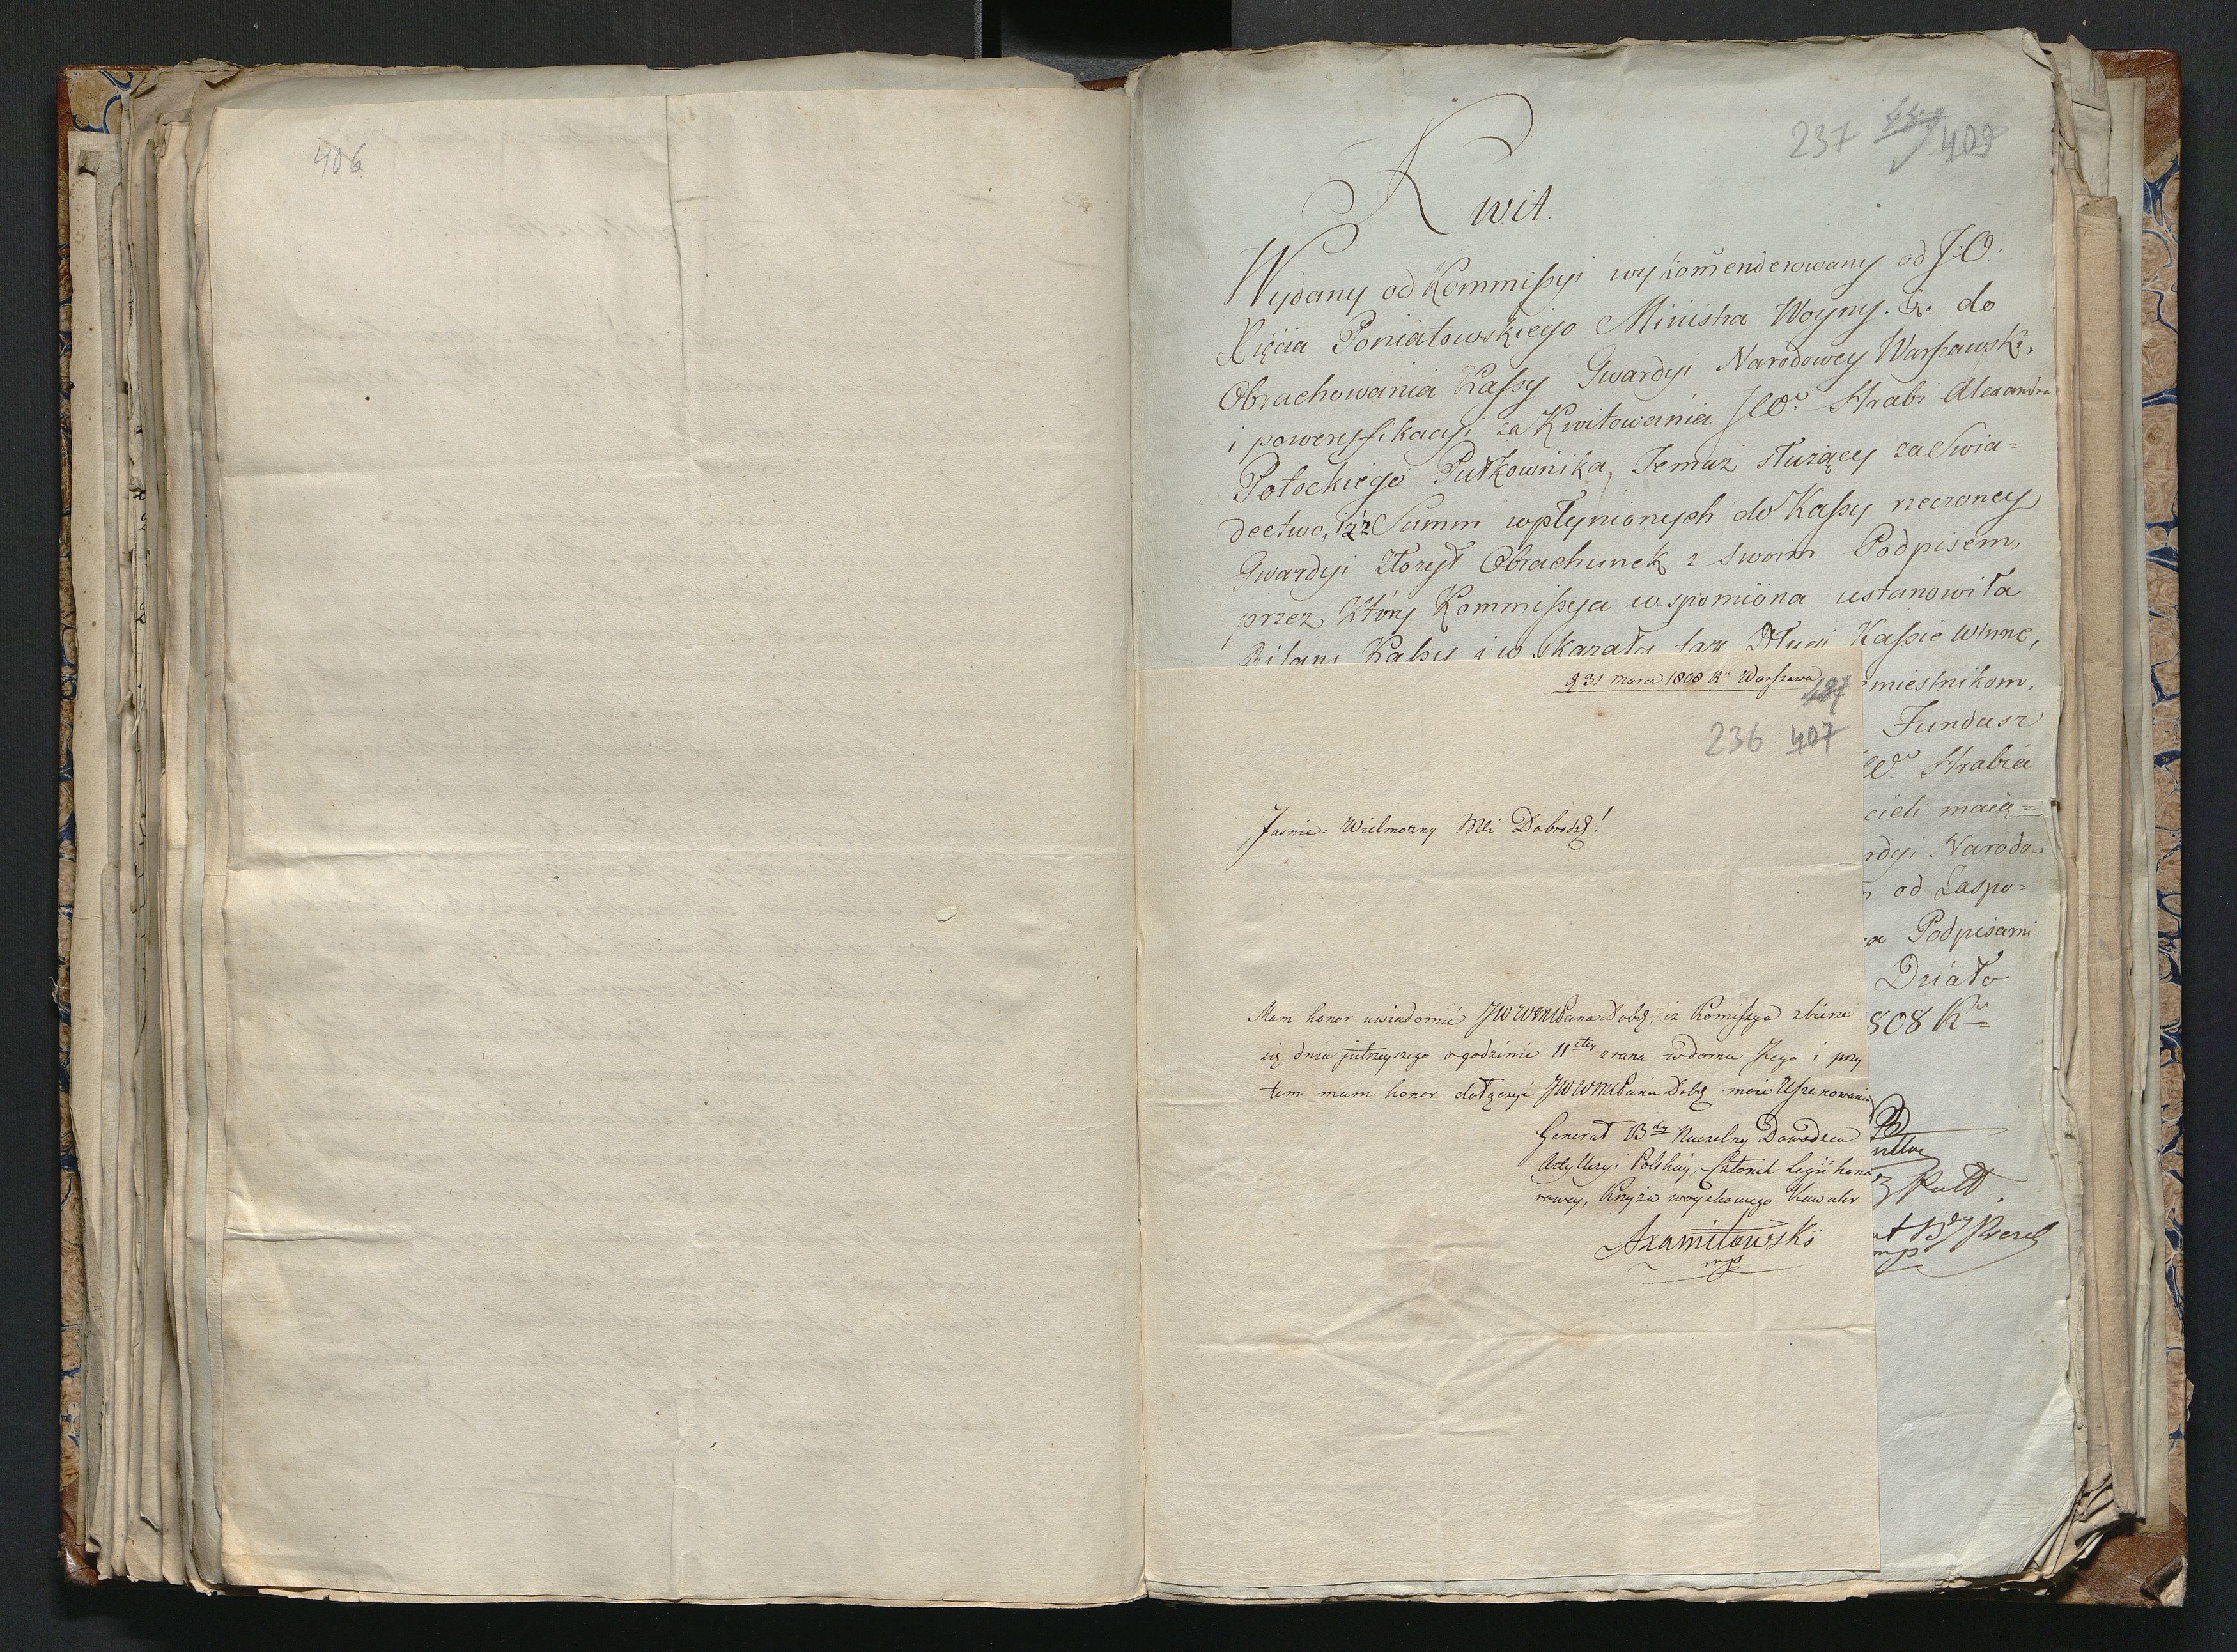 406
237 409
Kwit.
Wydany od Kommissyi wykom̃enderowany od J: O:
Xięcia Poniatowskiego Ministra Woyny. &. do
Obrachowania Kassy Gwardyi Narodowey Warszawskr.
i poweryfikacyi za Kwitowania JWo. Hrabi Alexandra
Potockiego Pułkownika, Temuż służący za Swia=
dectwo, iż z Summ wpłynionych do Kassy rzeczoney
Gwardyi Złożył Obrachunek z swoim Podpisem,
przez Który Kommissya wspomiona ustanowiła
Bilans Kassy i w skazała tak Długi Kassie winne,
miestnikom,
Fundusz
Hrabia
cieli maią=
rdyi Narodo-
od Zaspo=
Podpisami
Działo
808 Ru
Pułk.
mp
d 31 marca 1808 Ru Warszawa
487
236 407
Jaśnie: Wielmożny Mci Dobrodz!
Mam honor uwiadomić JWWMPana Dobr. iż Komissya zbierze
się dnia jutrzeyszego o godzinie 11stey z rana w domu Jego i przy
tem mam honor dołączyć JWWMPanu Dobr moie Uszanowanie
Generał Bdy Naczelny Dowodzca
Artylleryi Polskiey, Członek Legii hono
rowey, Krzyża woyskowego Kawaler
Axamitowski
mp